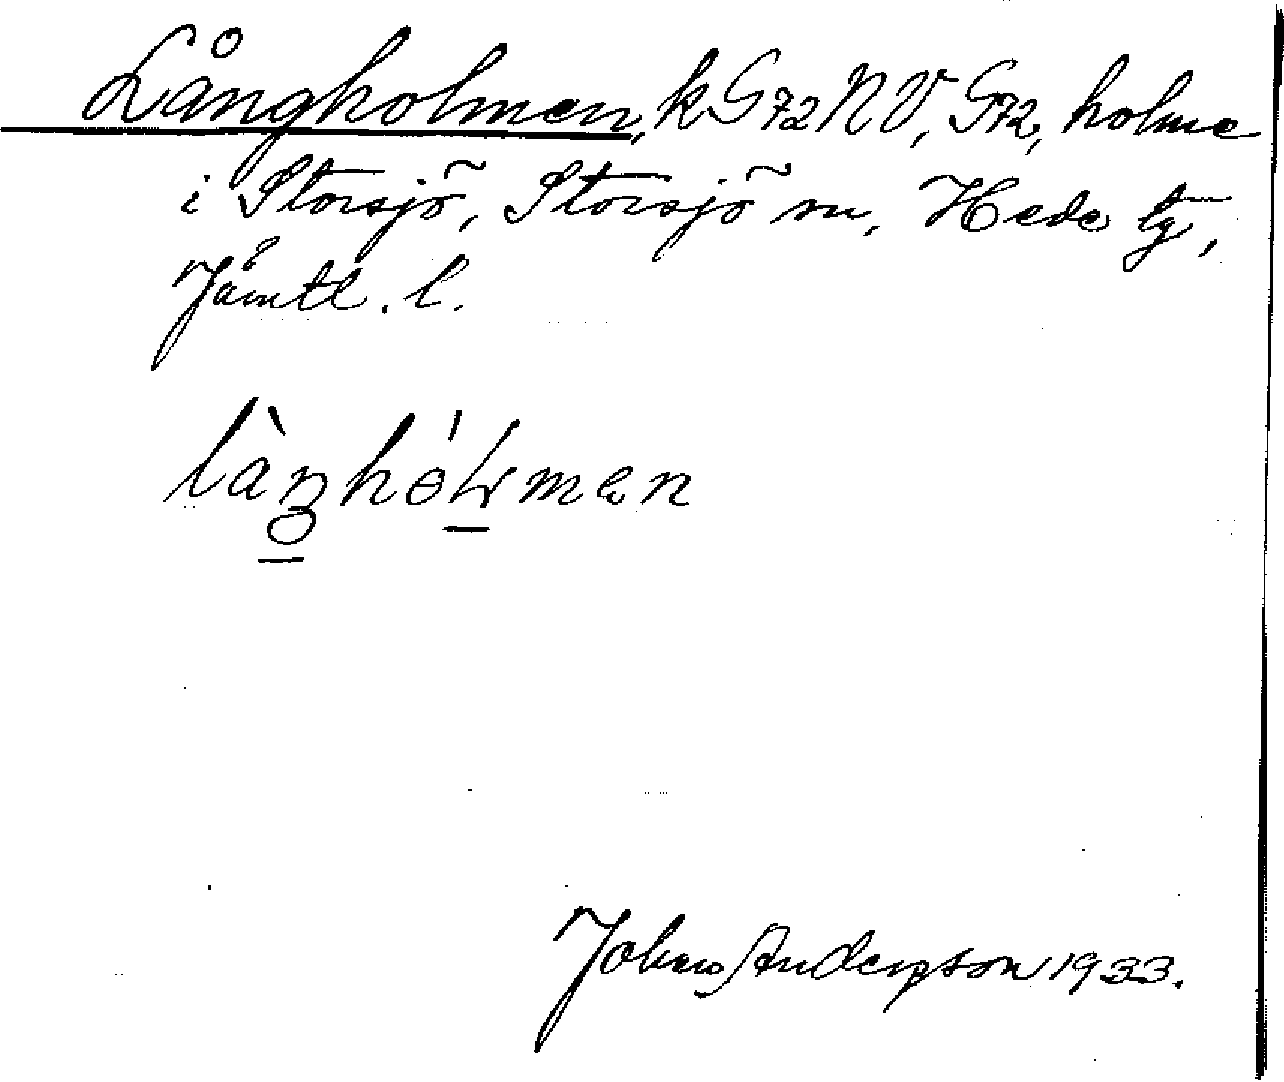 Långholmen, k G72 NV, G72, holme
i Storsjö, Storsjö sn, Hede tg,
Jämtl. l.
Johan Anderson 1933.